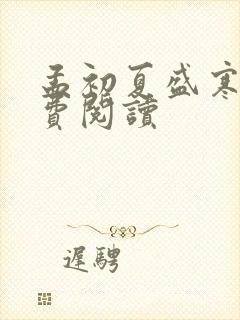 孟初夏盛寒
費閱讀
遲騁